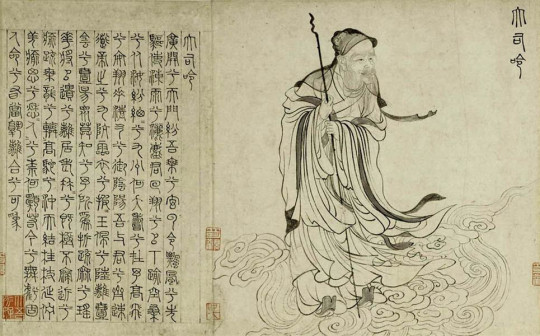 大司命
大司命
廣開兮天門紛吾乘兮玄雲令飄風兮先
驅使涷雨兮灑塵君迴翔兮以下踰空桑
兮從女紛總總兮九州何壽夭兮在予高飛
兮安翔乘清氣兮御陰陽吾與君兮齋速
導帝之兮九坑靈衣兮被被玉佩兮陸離壹
陰兮壹陽眾莫知兮余所為折疏麻兮瑤
華將以遺兮離居老冉冉兮既極不寖近兮
愈疏乘龍兮轔轔高駝兮沖天結桂枝兮延佇
羌愈思兮愁人愁人兮柰何願若今兮無虧固
人命兮有當孰離合兮可為